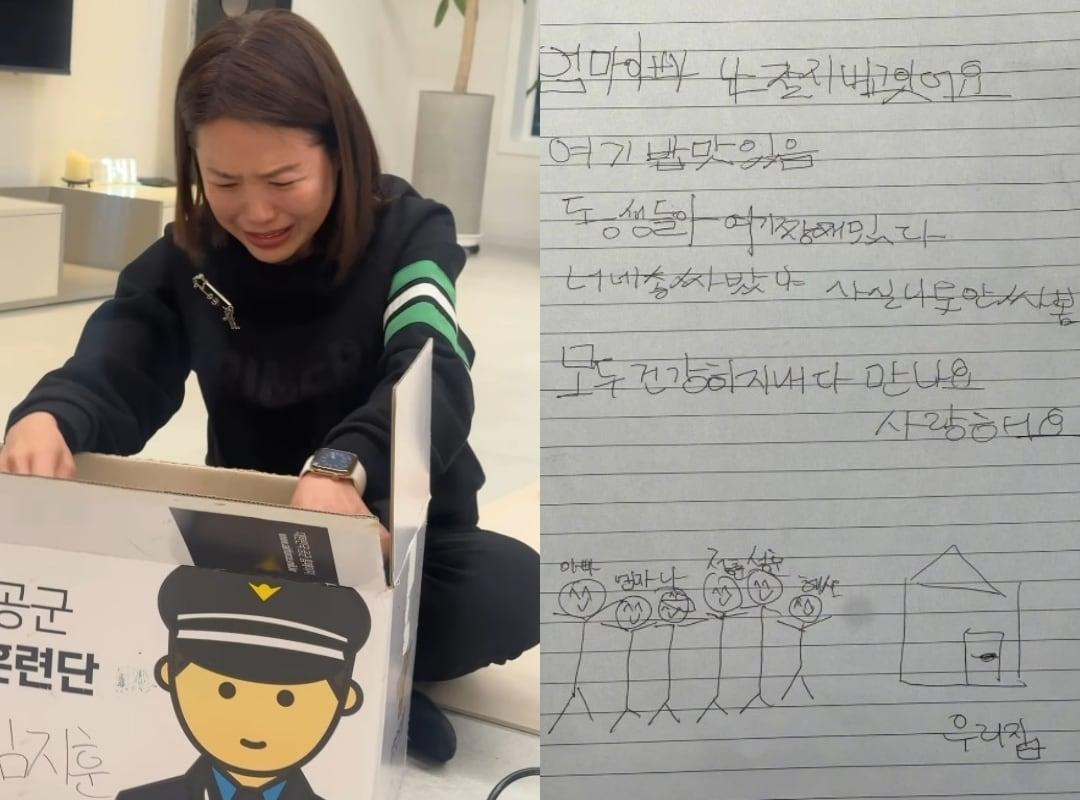 공군
훈련단
김지훈
엄마아빠 나 잘지내고있어요
여기 밥맛있음
동생들아 여기짱재밌다
너네총쏴봤냐 사실나도안쏴봄
모두건강하지내다 만나요
사랑해요
아빠 엄마 나 성훈 혜산
우리집